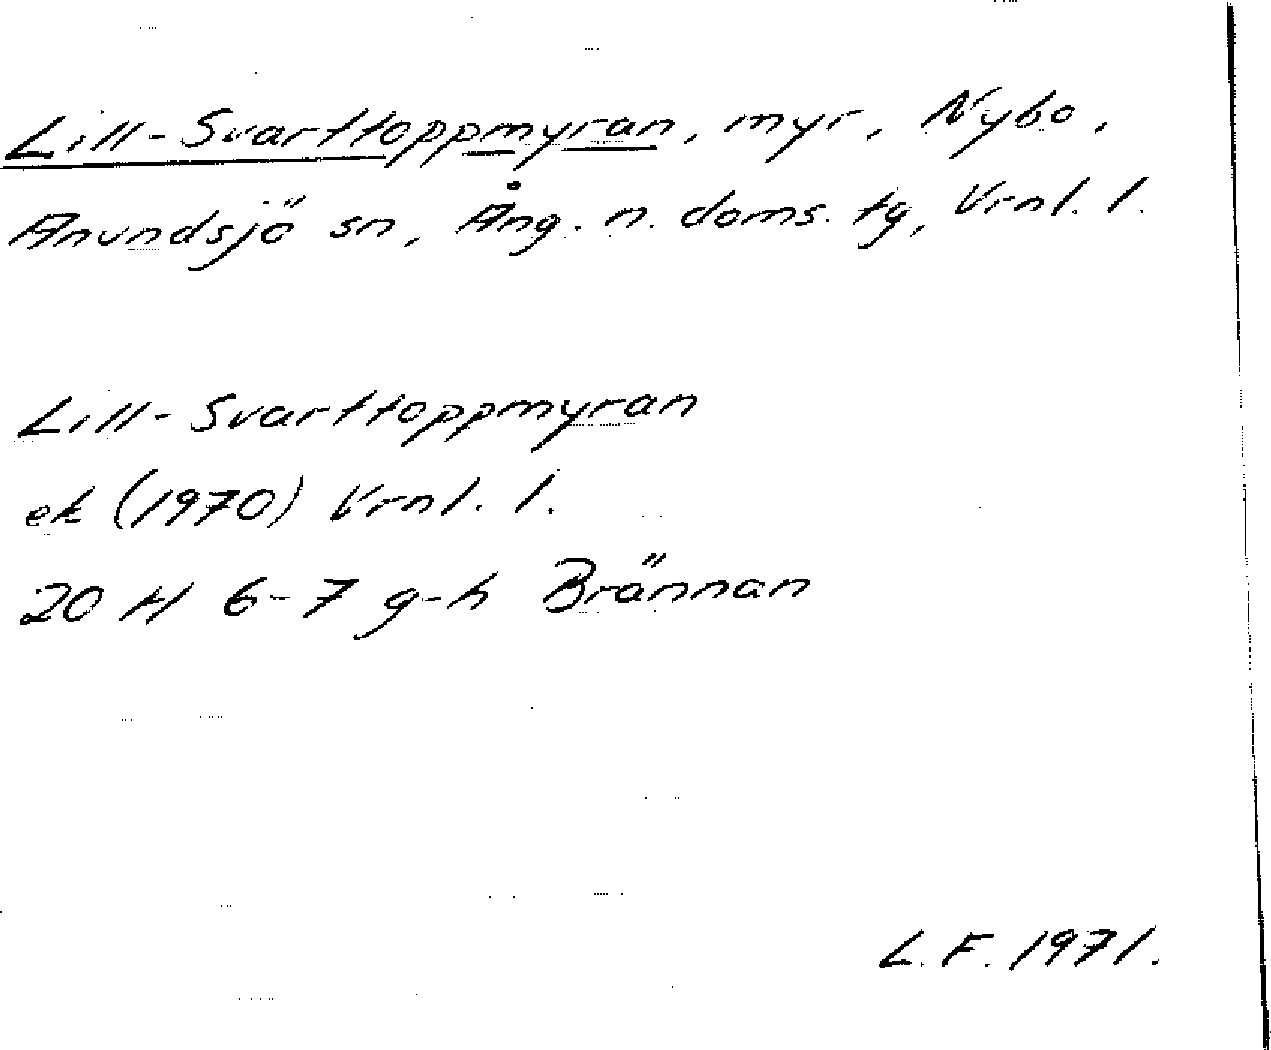 Lill-Svarttoppmyran, myr, Nybo,
Anundsjö sn, Ång. n. doms. tg, Vrnl. l.
Lill-Svarttoppmyran
ek (1970) Vrnl. l.
20 H 6-7 g-h Brännan
L. F. 1971.